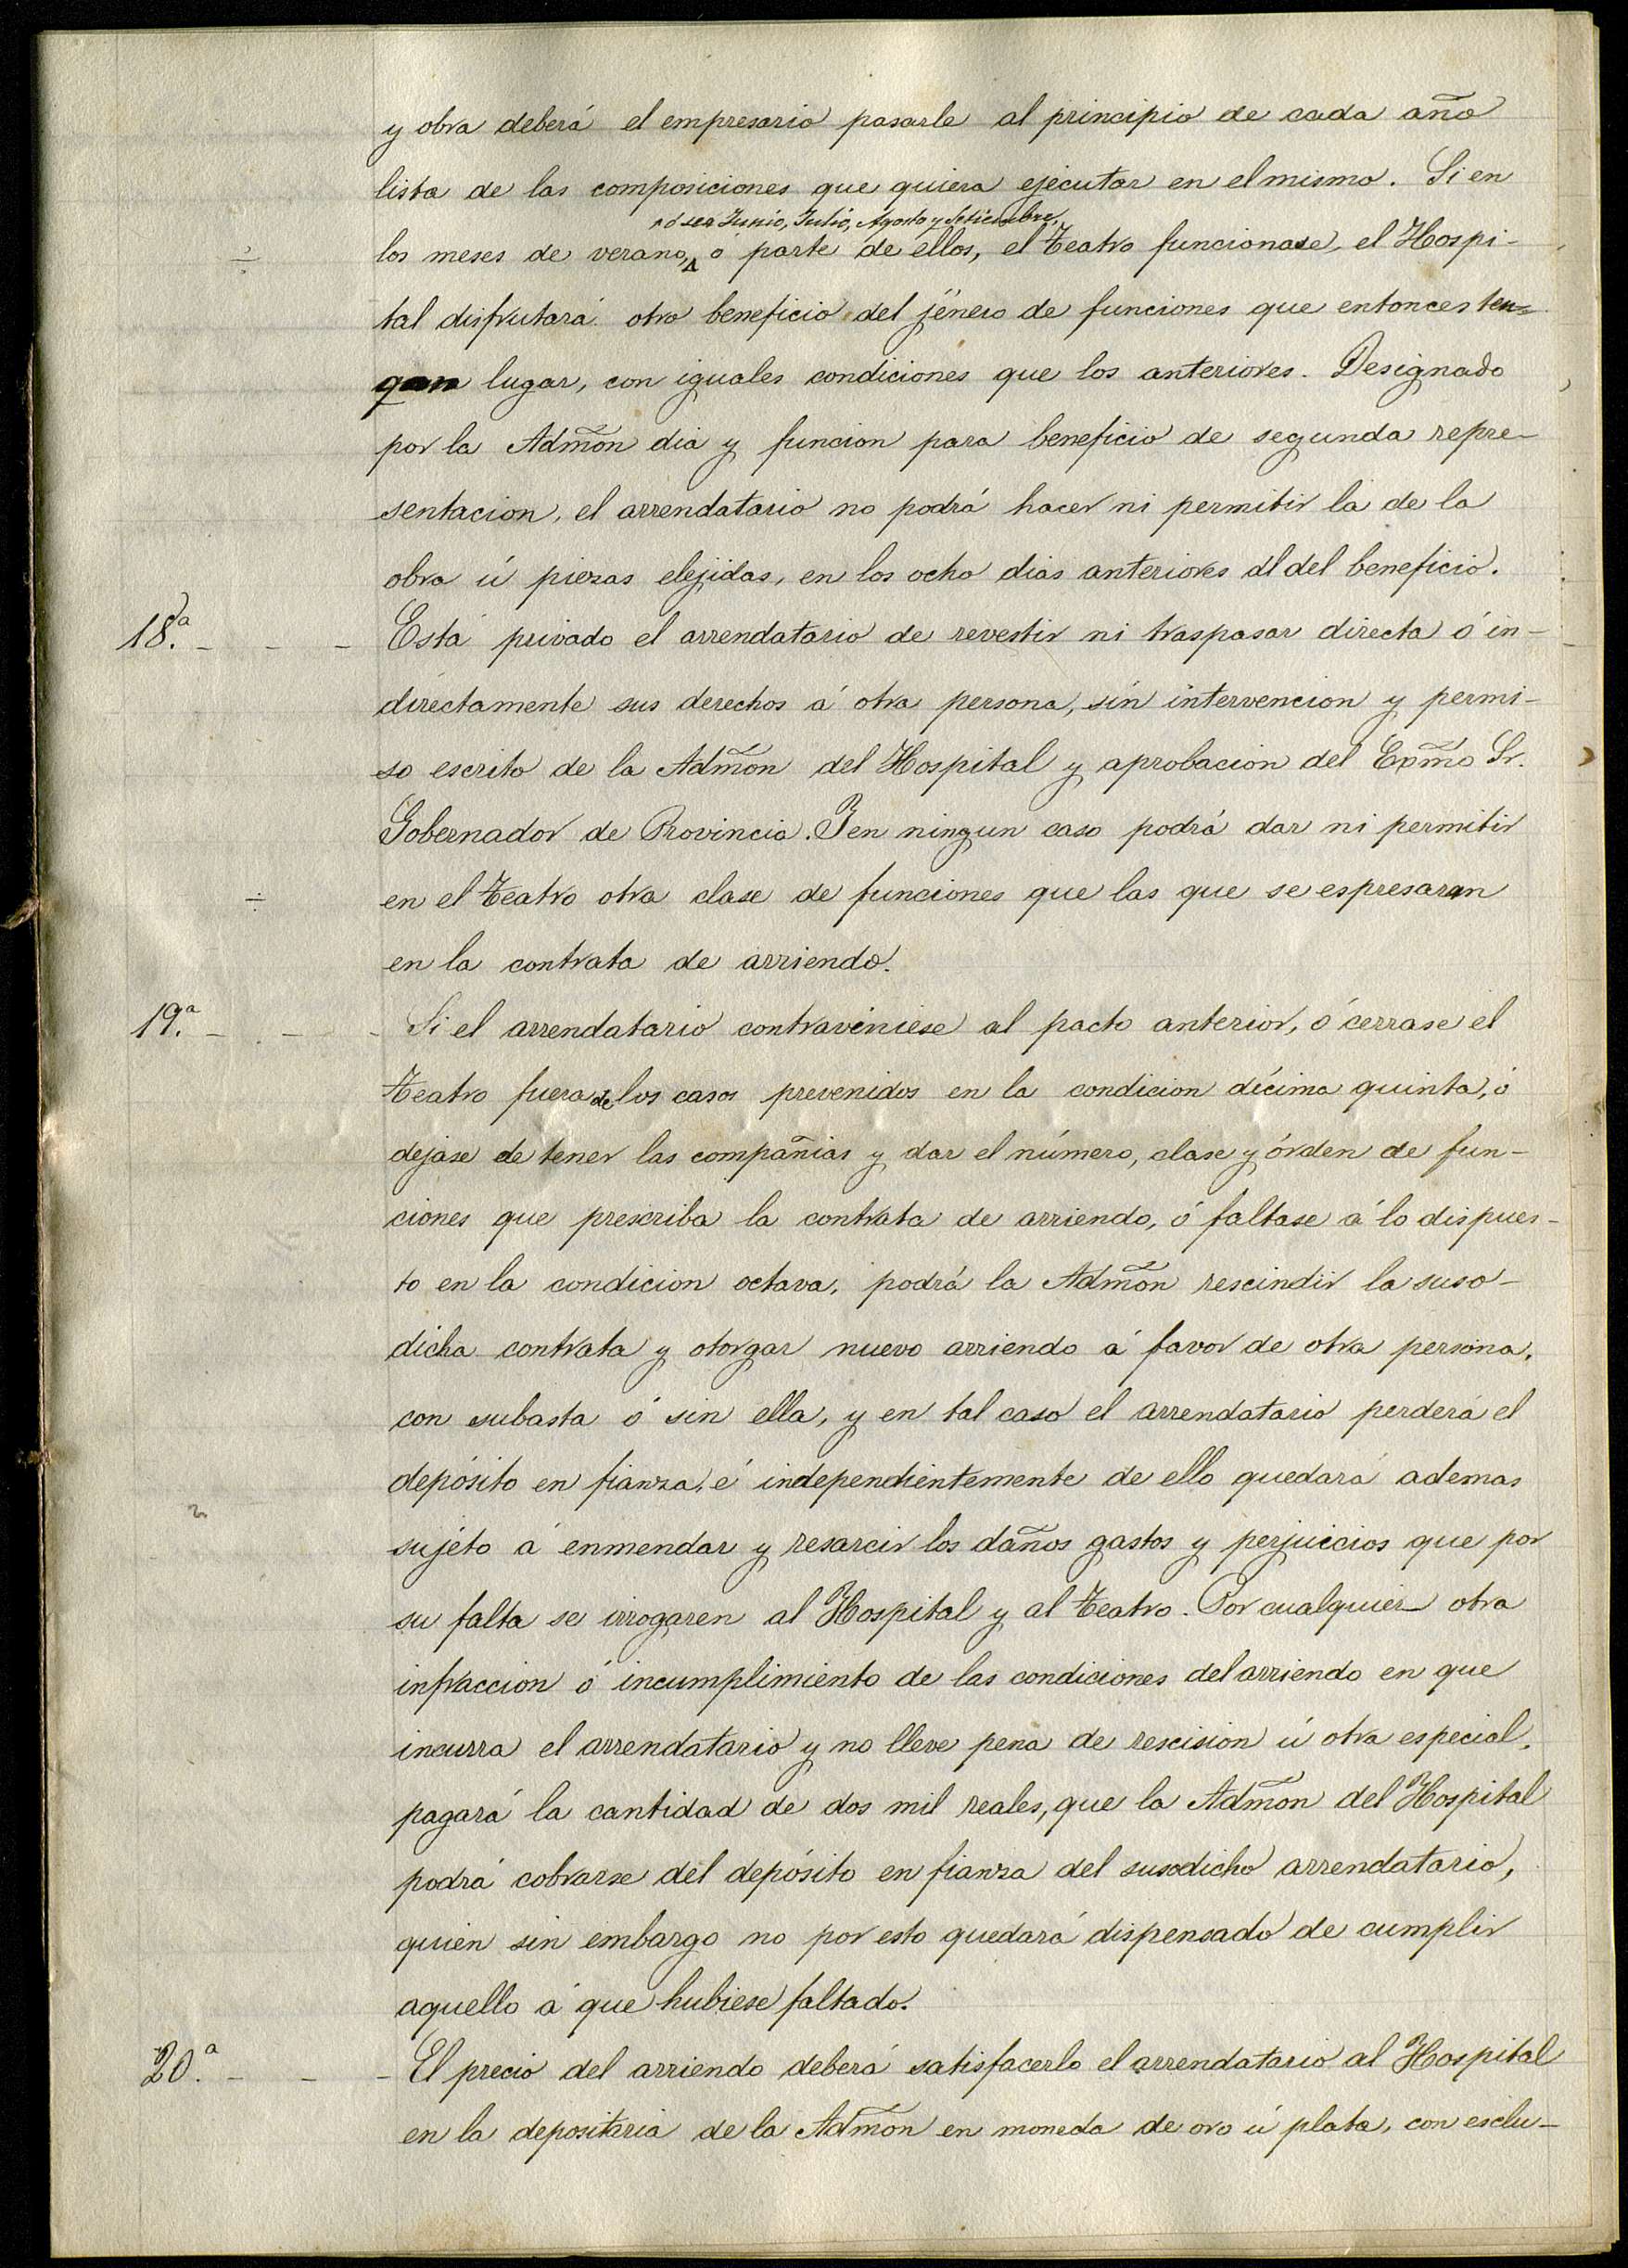 y obra deberá el empresario pasarle al principio de cada año
lista de las composiciones que quiera ejecutar en el mismo. Si en
ó sea Junio, Julio, Agosto y Setiembre,
los meses de verano, ó parte de ellos, el teatro funcionase, el Hospi-
tal disfrutará otro beneficio del jénero de funciones que entonces ten=
gan lugar, con iguales condiciones que los anteriores. Designado
por la Admõn dia y funcion para beneficio de segunda repre-
sentacion, el arrendatario no podrá hacer ni permitir la de la
obra ú piezas elejidas, en los ocho dias anteriores al del beneficio.
18.ª - - - Está privado el arrendatario de revestir ni traspasar directa ó in-
directamente sus derechos á otra persona, sin intervencion y permi-
so escrito de la Admõn del Hospital y aprobacion del Exm̃o Sr.
Gobernador de Provincia. Y en ningun caso podrá dar ni permitir
en el teatro otra clase de funciones que las que se espresaran
en la contrata de arriendo.
19.ª - - - Si el arrendatario contraviniese al pacto anterior, ó cerrase el
teatro fuera de los casos prevenidos en la condicion décima quinta, ó
dejase de tener las compañias y dar el número, clase y órden de fun-
ciones que prescriba la contrata de arriendo, ó faltase á lo dispues-
to en la condicion octava, podrá la Admõn rescindir la suso-
dicha contrata y otorgar nuevo arriendo á favor de otra persona,
con subasta ó sin ella, y en tal caso el arrendatario perderá el
depósito en fianza, é independientemente de ello quedará ademas
sujeto á enmendar y resarcir los daños gastos y perjuicios que por
su falta se irrogaren al Hospital y al teatro. Por cualquier otra
infraccion ó incumplimiento de las condiciones del arriendo en que
incurra el arrendatario y no lleve pena de rescision ú otra especial,
pagará la cantidad de dos mil reales, que la Admõn del Hospital
podrá cobrarse del depósito en fianza del susodicho arrendatario,
quien sin embargo no por esto quedará dispensado de cumplir
aquello á que hubiese faltado.
20.ª - - - El precio del arriendo deberá satisfacerlo el arrendatario al Hospital
en la depositaria de la Admõn en moneda de oro ú plata, con esclu-